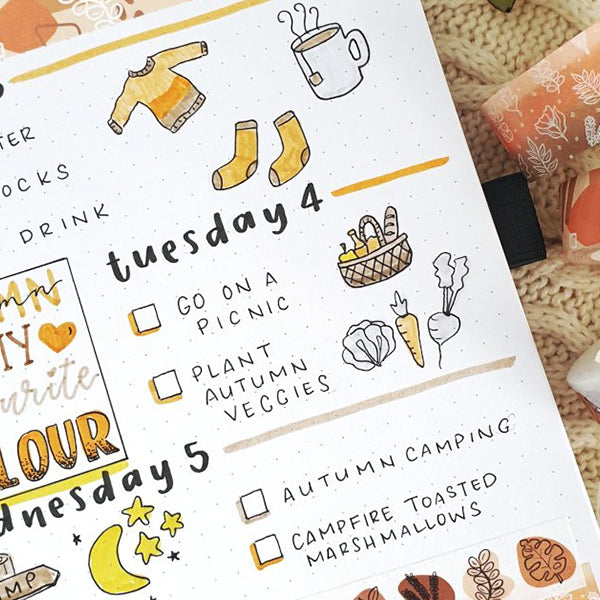 OCKS
DRINK
tuesday 4
GO ON A
PICNIC
PLANT
AUTUMN
VEGGIES
MY
LOUR
dnesday 5
AUTUMN CAMPING
CAMPFIRE TOASTED
MARSHMALLOWS